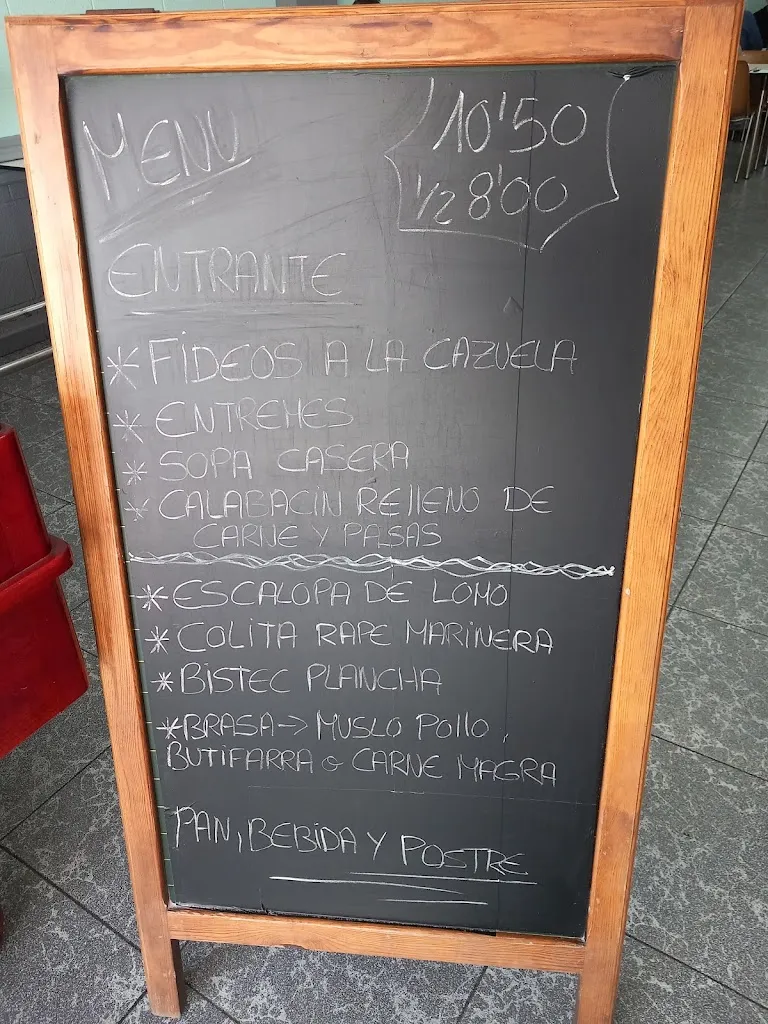 MENU
10'50
1/2 8'00
ENTRANTE
* FIDEOS A LA CAZUELA
* ENTREMES
* SOPA CASERA
* CALABACIN RELLENO DE
CARNE Y PASAS
* ESCALOPA DE LOMO
* COLITA RAPE MARINERA
* BISTEC PLANCHA
* BRASA -> MUSLO POLLO,
BUTIFARRA o CARNE MAGRA
PAN, BEBIDA Y POSTRE